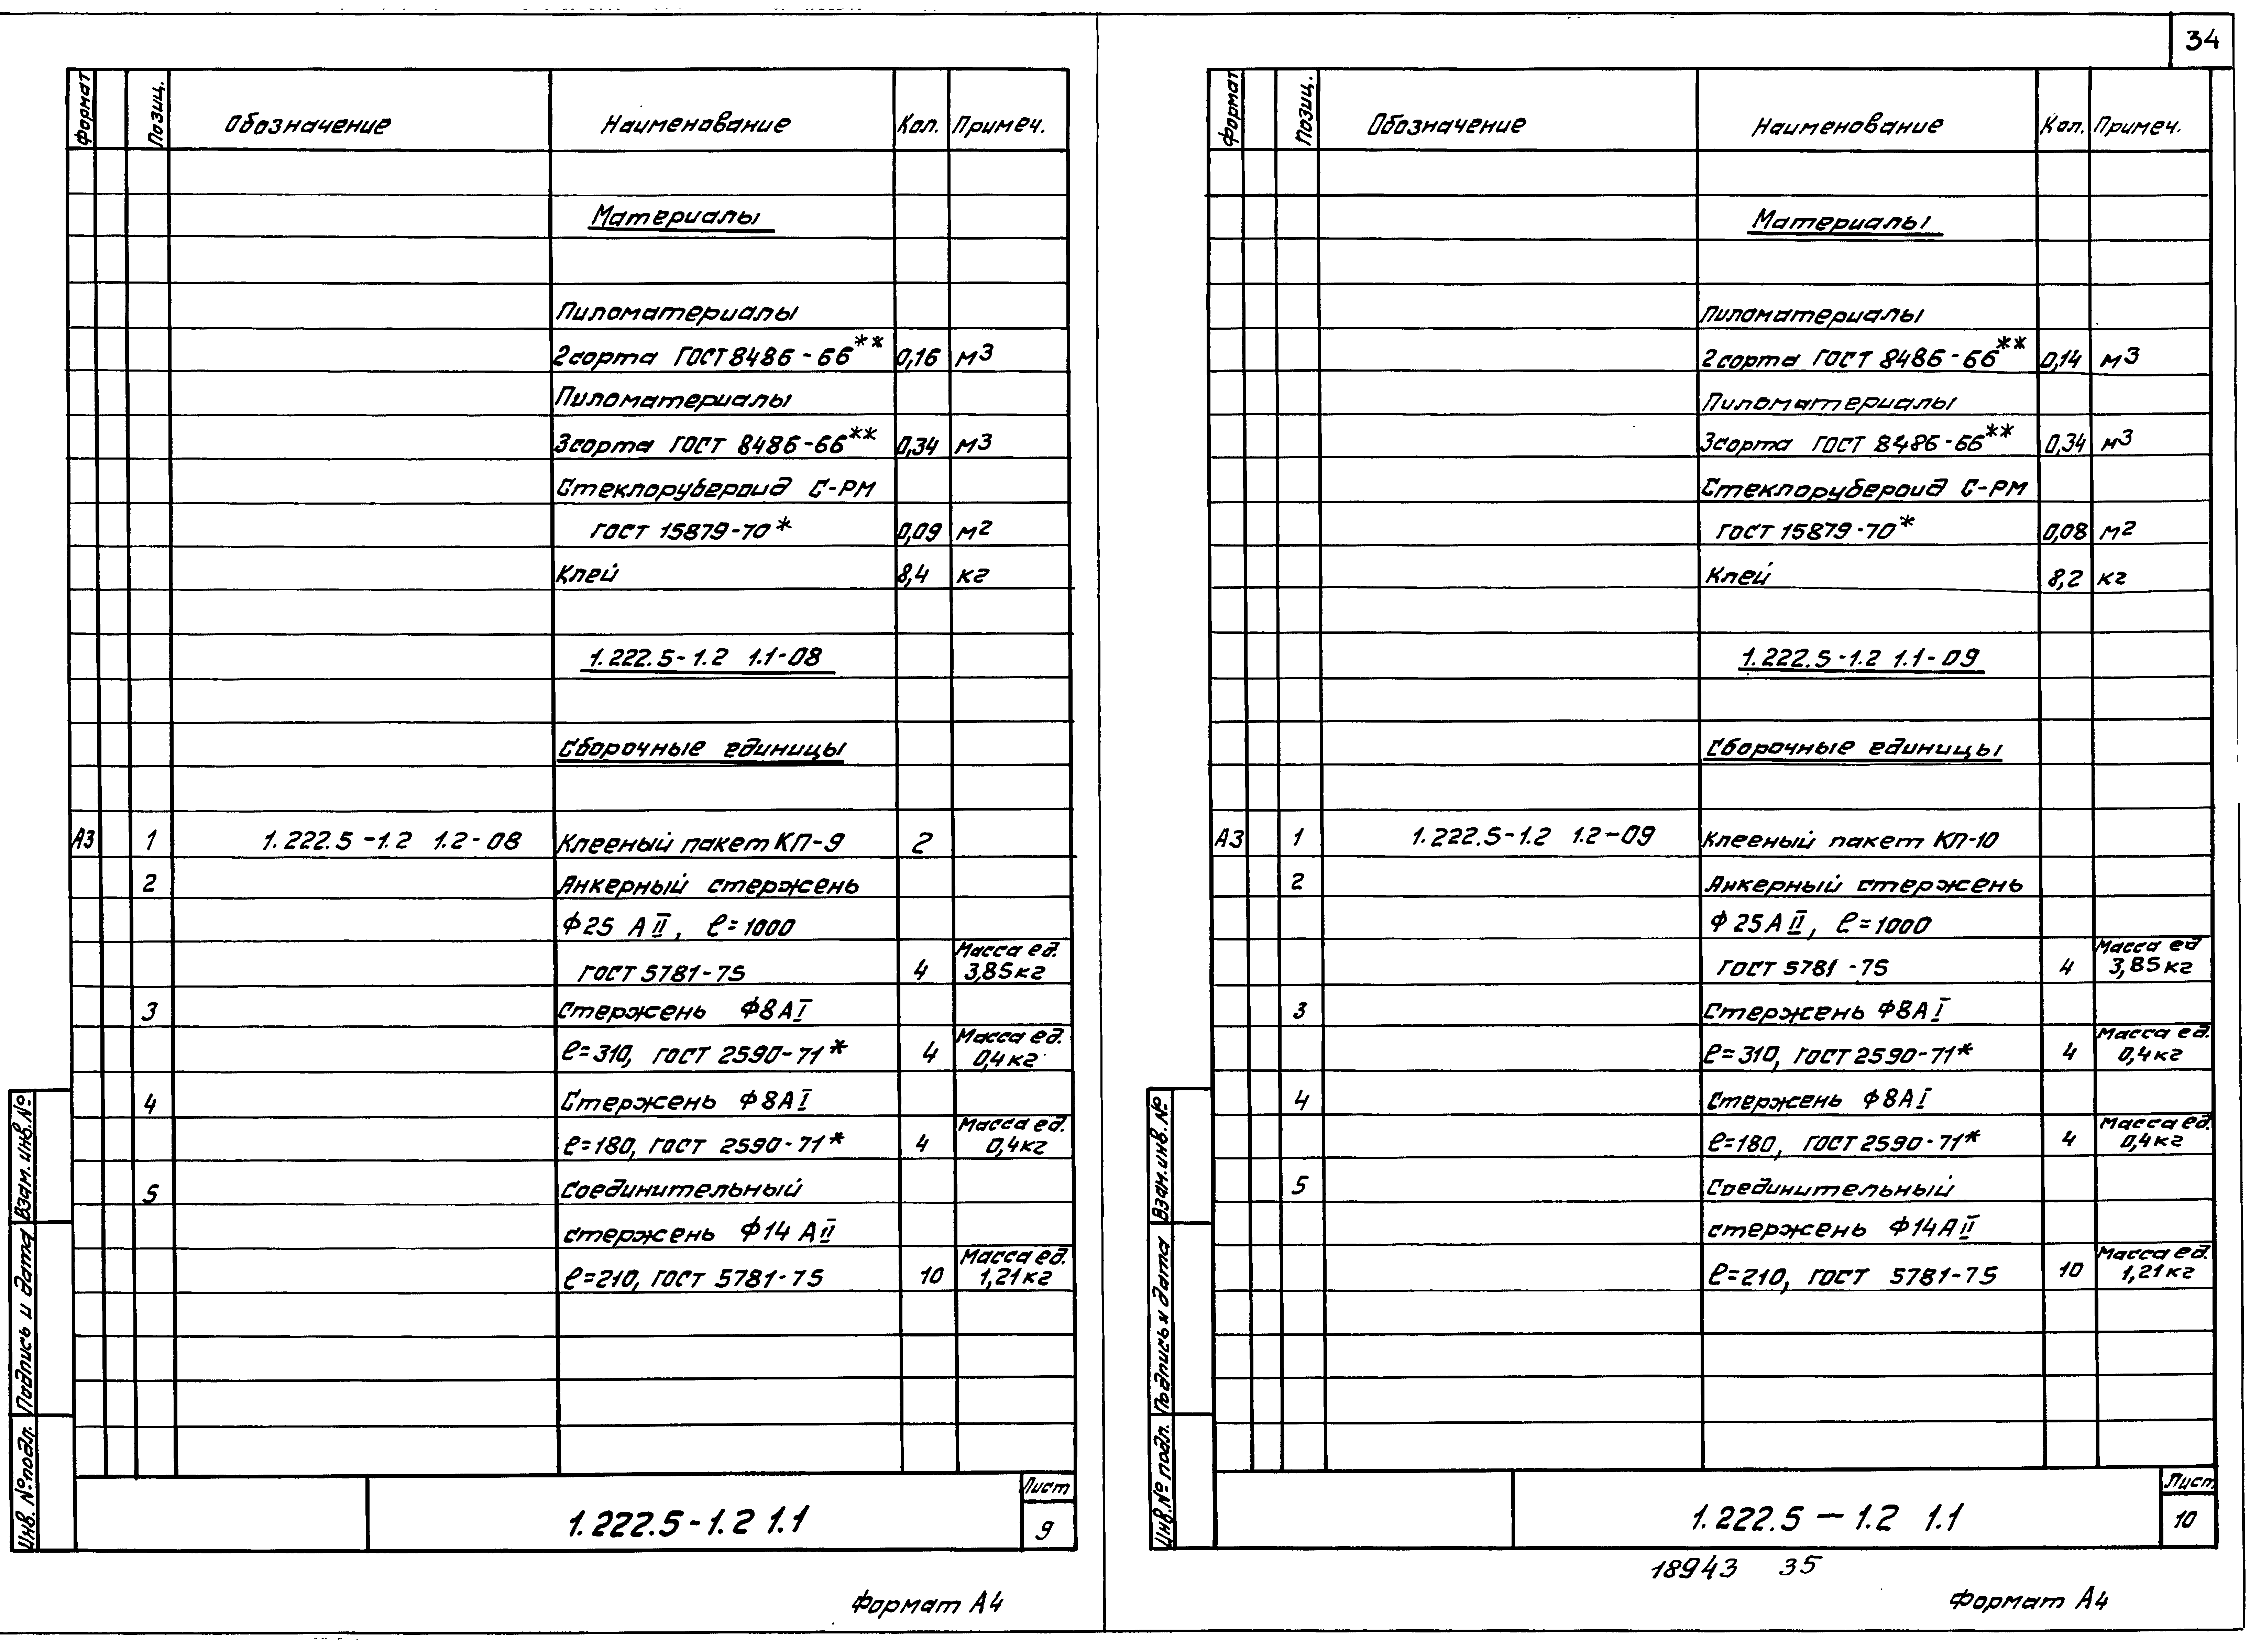 34
Формат Позиц. Обозначение Наименование Кол. Примеч.
Материалы
Пиломатериалы
2сорта ГОСТ 8486-66** 0,16 м3
Пиломатериалы
3сорта ГОСТ 8486-66** 0,34 м3
Стеклорубероид С-РМ
ГОСТ 15879-70* 0,09 м2
Клей 8,4 кг
1.222.5-1.2 1.1-08
Сборочные единицы
А3 1 1.222.5-1.2 1.2-08 Клееный пакет КП-9 2
2 Анкерный стержень
Ф25 АII, ℓ=1000
ГОСТ 5781-75 4 Масса ед. 3,85кг
3 Стержень Ф8АI
ℓ=310, ГОСТ 2590-71* 4 Масса ед. 0,4кг
4 Стержень Ф8АI
ℓ=180, ГОСТ 2590-71* 4 Масса ед. 0,4кг
5 Соединительный
стержень Ф14 АII
ℓ=210, ГОСТ 5781-75 10 Масса ед. 1,21кг
Инв. № подл. Подпись и дата Взам. инв. №
1.222.5-1.2 1.1
Лист
9
Формат А4
Формат Позиц. Обозначение Наименование Кол. Примеч.
Материалы
Пиломатериалы
2сорта ГОСТ 8486-66** 0,14 м3
Пиломатериалы
3сорта ГОСТ 8486-66** 0,34 м3
Стеклорубероид С-РМ
ГОСТ 15879-70* 0,08 м2
Клей 8,2 кг
1.222.5-1.2 1.1-09
Сборочные единицы
А3 1 1.222.5-1.2 1.2-09 Клееный пакет КП-10
2 Анкерный стержень
Ф25АII, ℓ=1000
ГОСТ 5781-75 4 Масса ед 3,85кг
3 Стержень Ф8АI
ℓ=310, ГОСТ 2590-71* 4 Масса ед. 0,4кг
4 Стержень Ф8АI
ℓ=180, ГОСТ 2590-71* 4 Масса ед. 0,4кг
5 Соединительный
стержень Ф14АII
ℓ=210, ГОСТ 5781-75 10 Масса ед. 1,21кг
Инв. № подл. Подпись и дата Взам. инв. №
1.222.5-1.2 1.1
Лист
10
18943 35
Формат А4